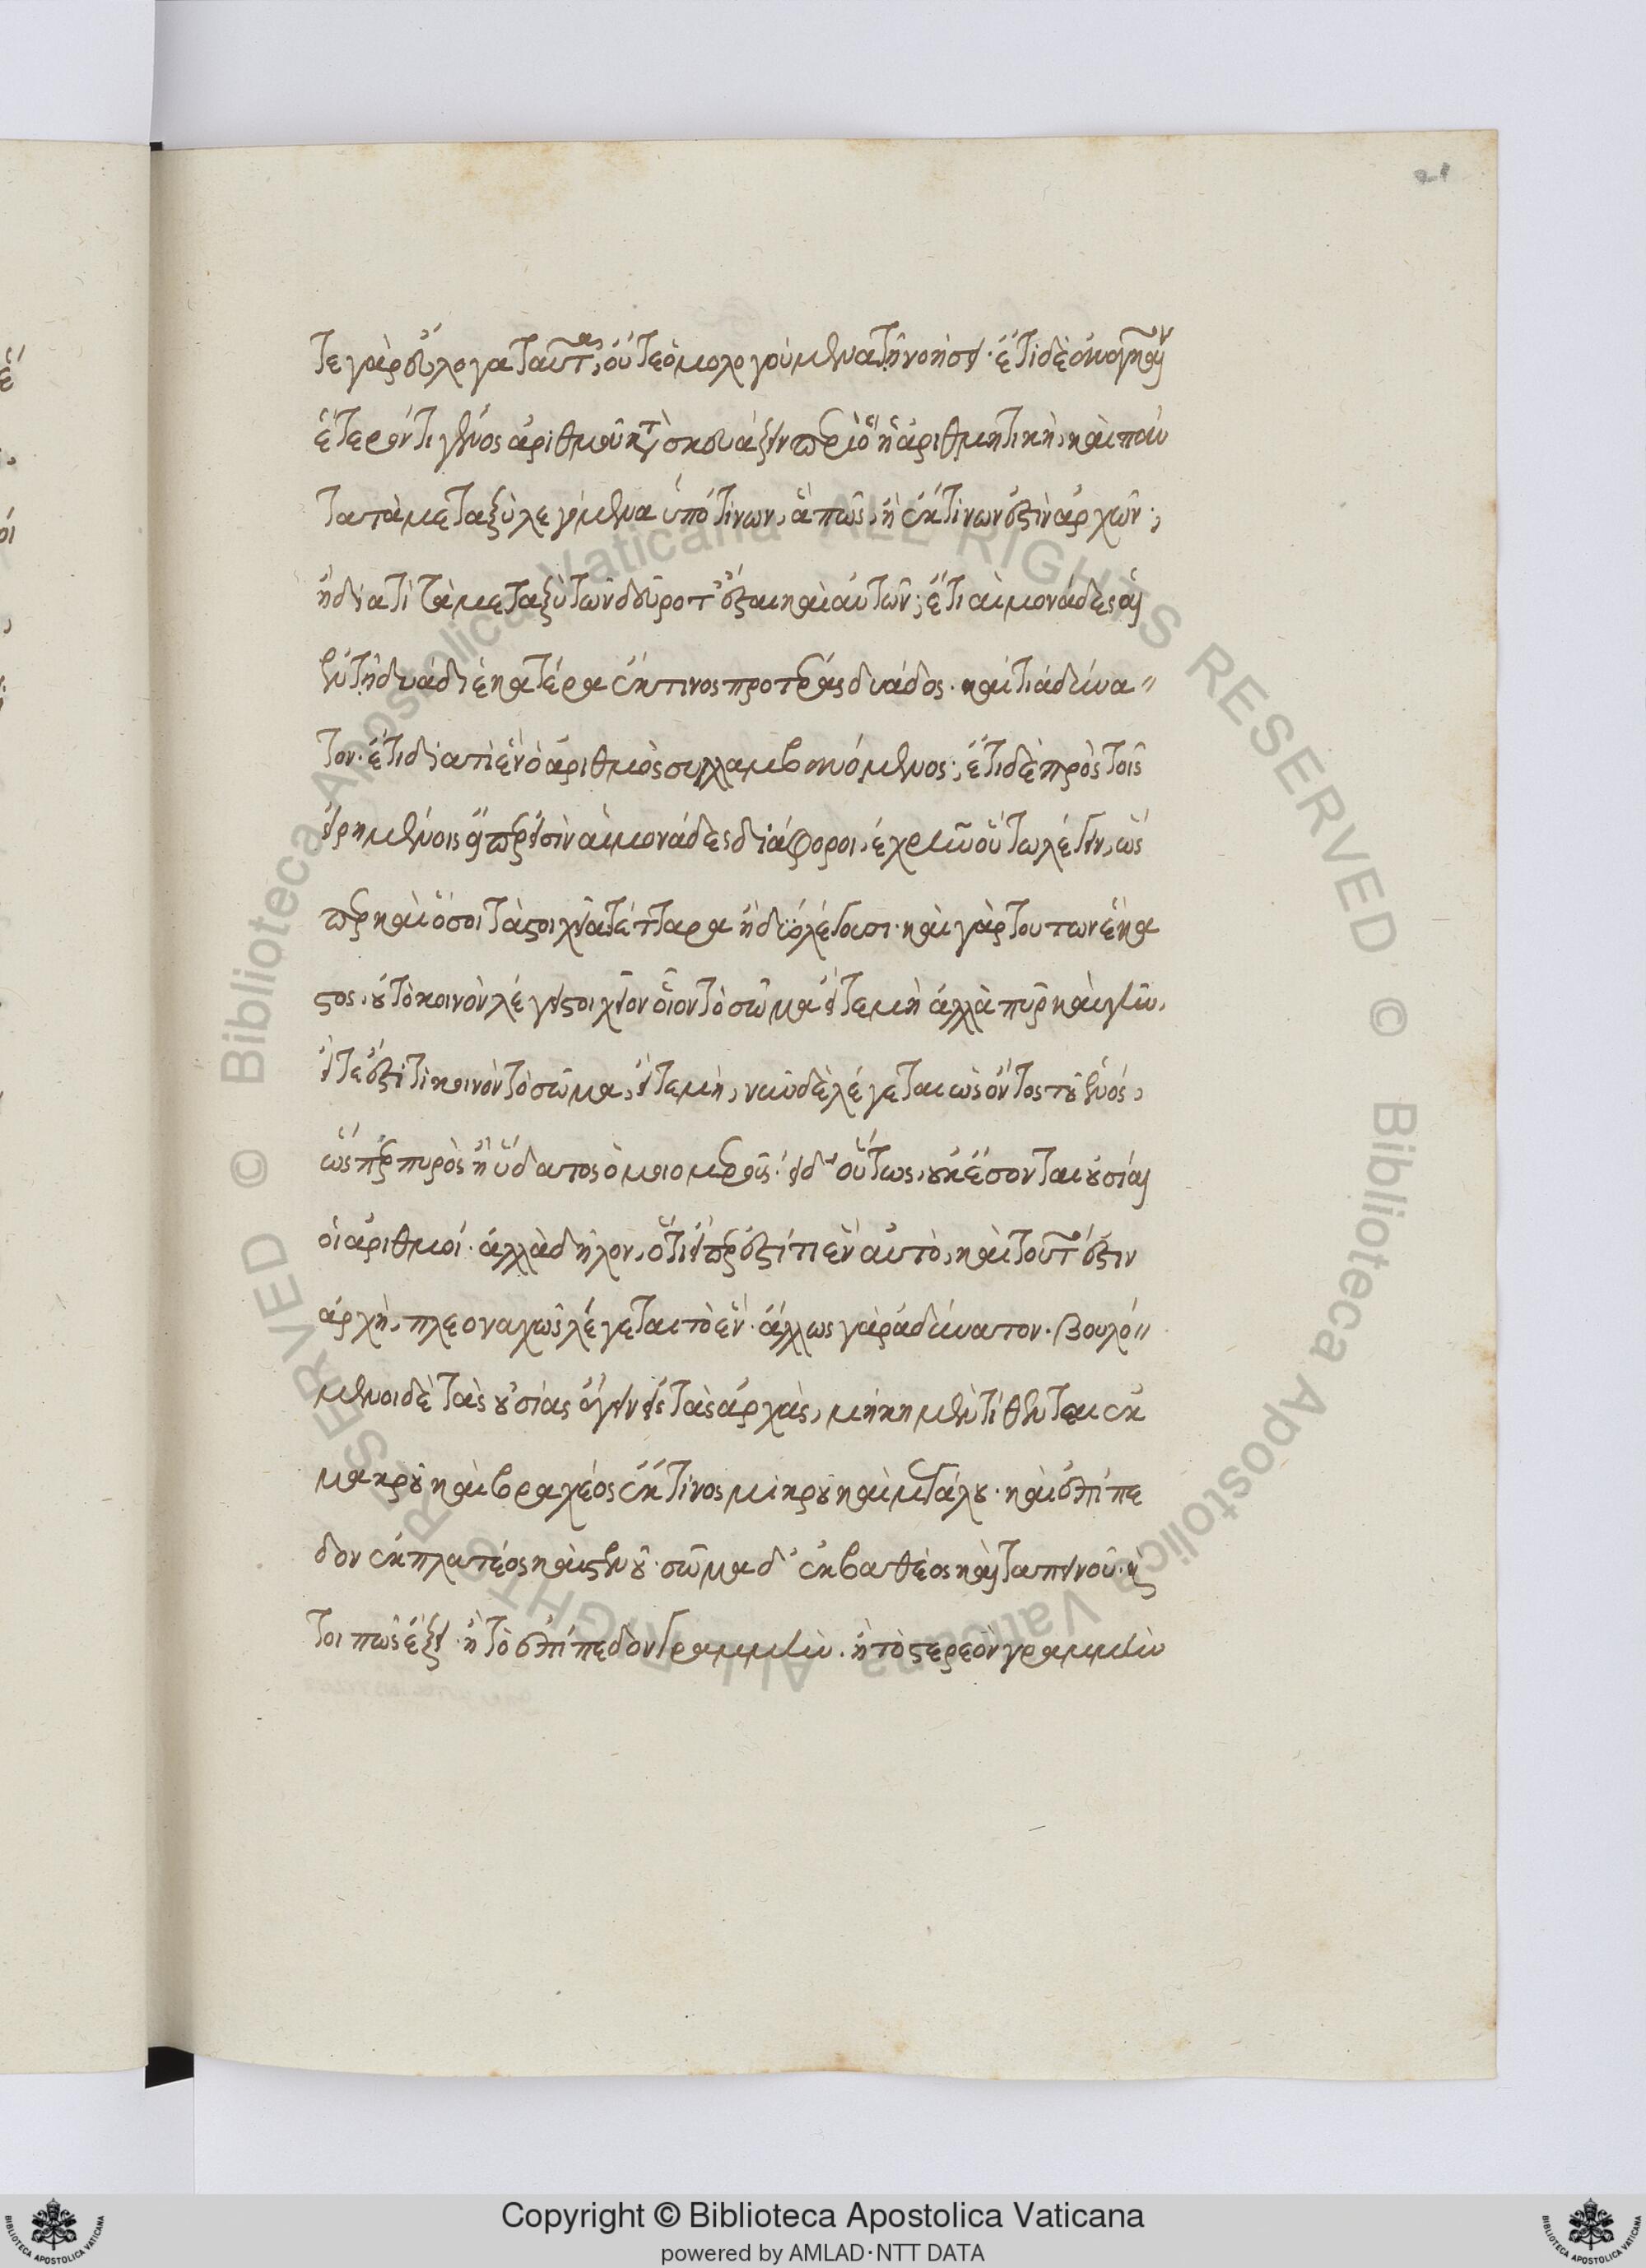 21
τε γὰρ εὔλογα ταῦτα, οὔτε ὁμολογούμενα τῆ νοήσει· ἔτι δὲ ἀναγκαῖον
ἕτερόν τι γένος ἀριθμοῦ κατασκευάζειν περὶ ὃ ἡ ἀριθμητικὴ, καὶ πάν
τα τὰ μεταξὺ λεγόμενα ὑπό τινων, ἃ πῶς, ἢ ἐκ τίνων ἐστὶν ἀρχῶν·,
ἢ διατὶ τὰ μεταξὺ τῶν δεῦρο τ' ἔσται καὶ αὐτῶν; ἔτι αἱ μονάδες αἱ
ἐν τῆ δυάδι ἑκατέρα ἔκ τινος προτέρας δυάδος· καί τι ἀδύνα〃
τον· ἔτι διατὶ ἓν ὁ ἀριθμὸς συλλαμβανόμενος; ἔτι δὲ πρὸς τοῖς
εἰρημένοις εἴπερ εἰσὶν αἱ μονάδες διάφοροι, ἐχρῆν οὕτω λέγειν, ὥς
περ καὶ ὅσοι τὰ στοιχεῖα τέτταρα ἢ δύο λέγουσι· καὶ γὰρ τούτων ἕκα
στος, οὐ τὸ κοινὸν λέγει στοιχεῖον οἷον τὸ σῶμα εἴτε μὴ ἀλλὰ πῦρ καὶ γῆν,
εἴτε ἐστί τι κοινὸν τὸ σῶμα, εἴτε μὴ, νῦν δὲ λέγεται ὡς ὄντος τοῦ ἑνός,
ὥσπερ πυρὸς ἢ ὕδατος ὁμοιομεροῦς· εἰ δ' οὕτως, οὐκ ἔσονται οὐσίαι
οἱ ἀριθμοί· ἀλλὰ δῆλον, ὅτι εἴπερ ἐστί τι ἓν αὐτὸ, καὶ τοῦτ' ἐστιν
ἀρχὴ, πλεοναχῶς λέγεται τὸ ἕν· ἄλλως γὰρ ἀδύνατον· βουλό〃
μενοι δὲ τὰς οὐσίας ἄγειν εἰς τὰς ἀρχὰς, μήκη μὲν τίθενται ἐκ
μακροῦ καὶ βραχέος ἔκ τινος μικροῦ καὶ μεγάλου· καὶ ἐπίπε
δον ἐκ πλατέος καὶ στενοῦ· σῶμα δ' ἐκ βαθέος καὶ ταπεινοῦ· καί
τοι πῶς ἕξει ἢ τὸ ἐπίπεδον γραμμὴν· ἢ τὸ στερεὸν γραμμὴν
Copyright © Biblioteca Apostolica Vaticana
powered by AMLAD·NTT DATA